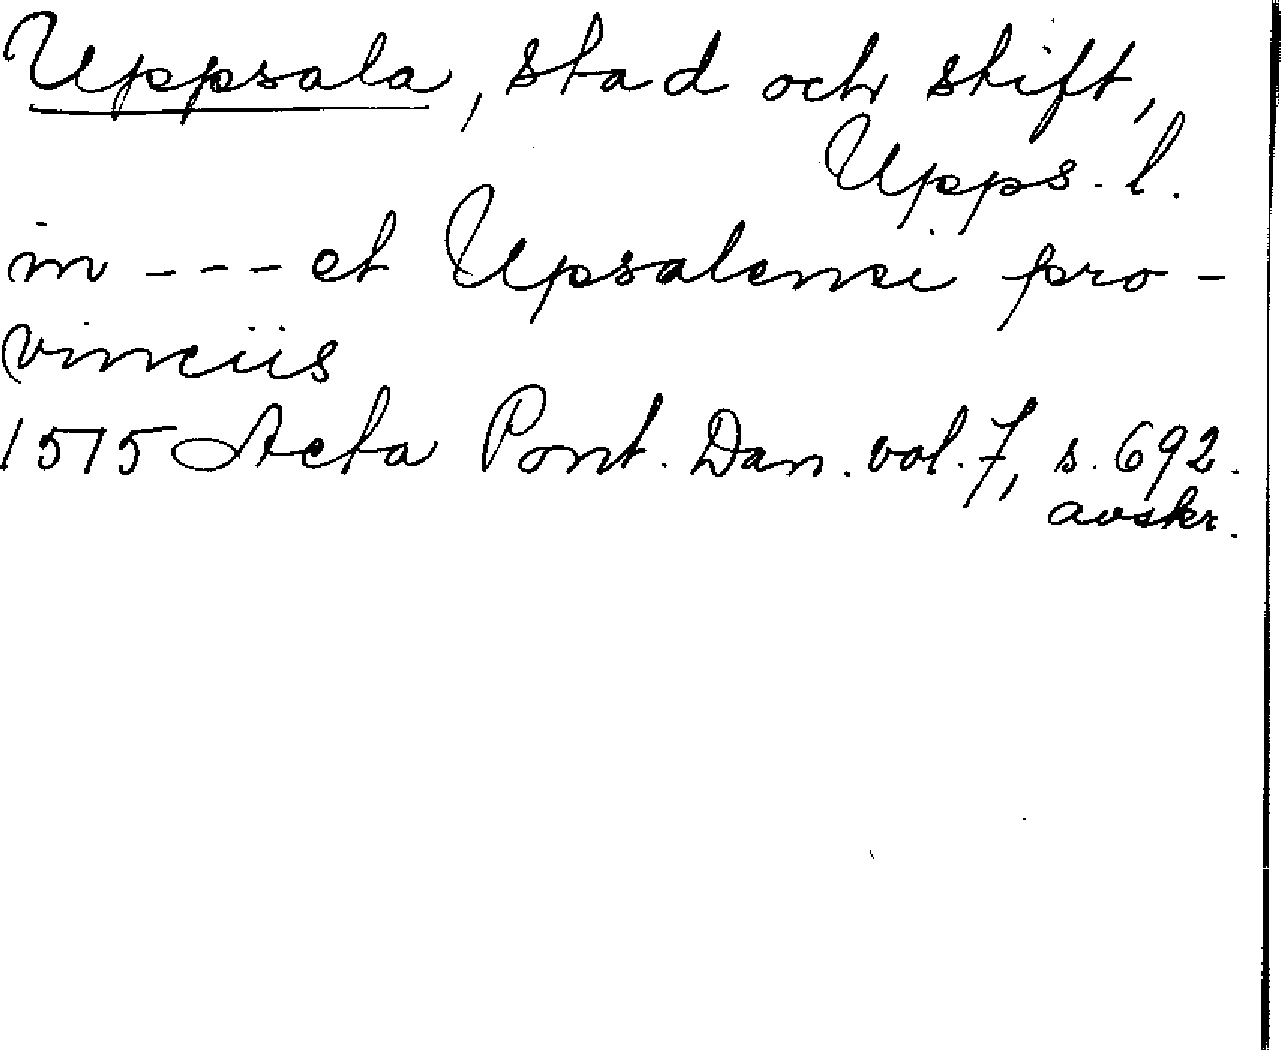 Uppsala, stad och stift,
Upps. l.
in --- et Upsalensi pro-
vinciis
1515 Acta Pont. Dan. vol. 7, s. 692.
avskr.